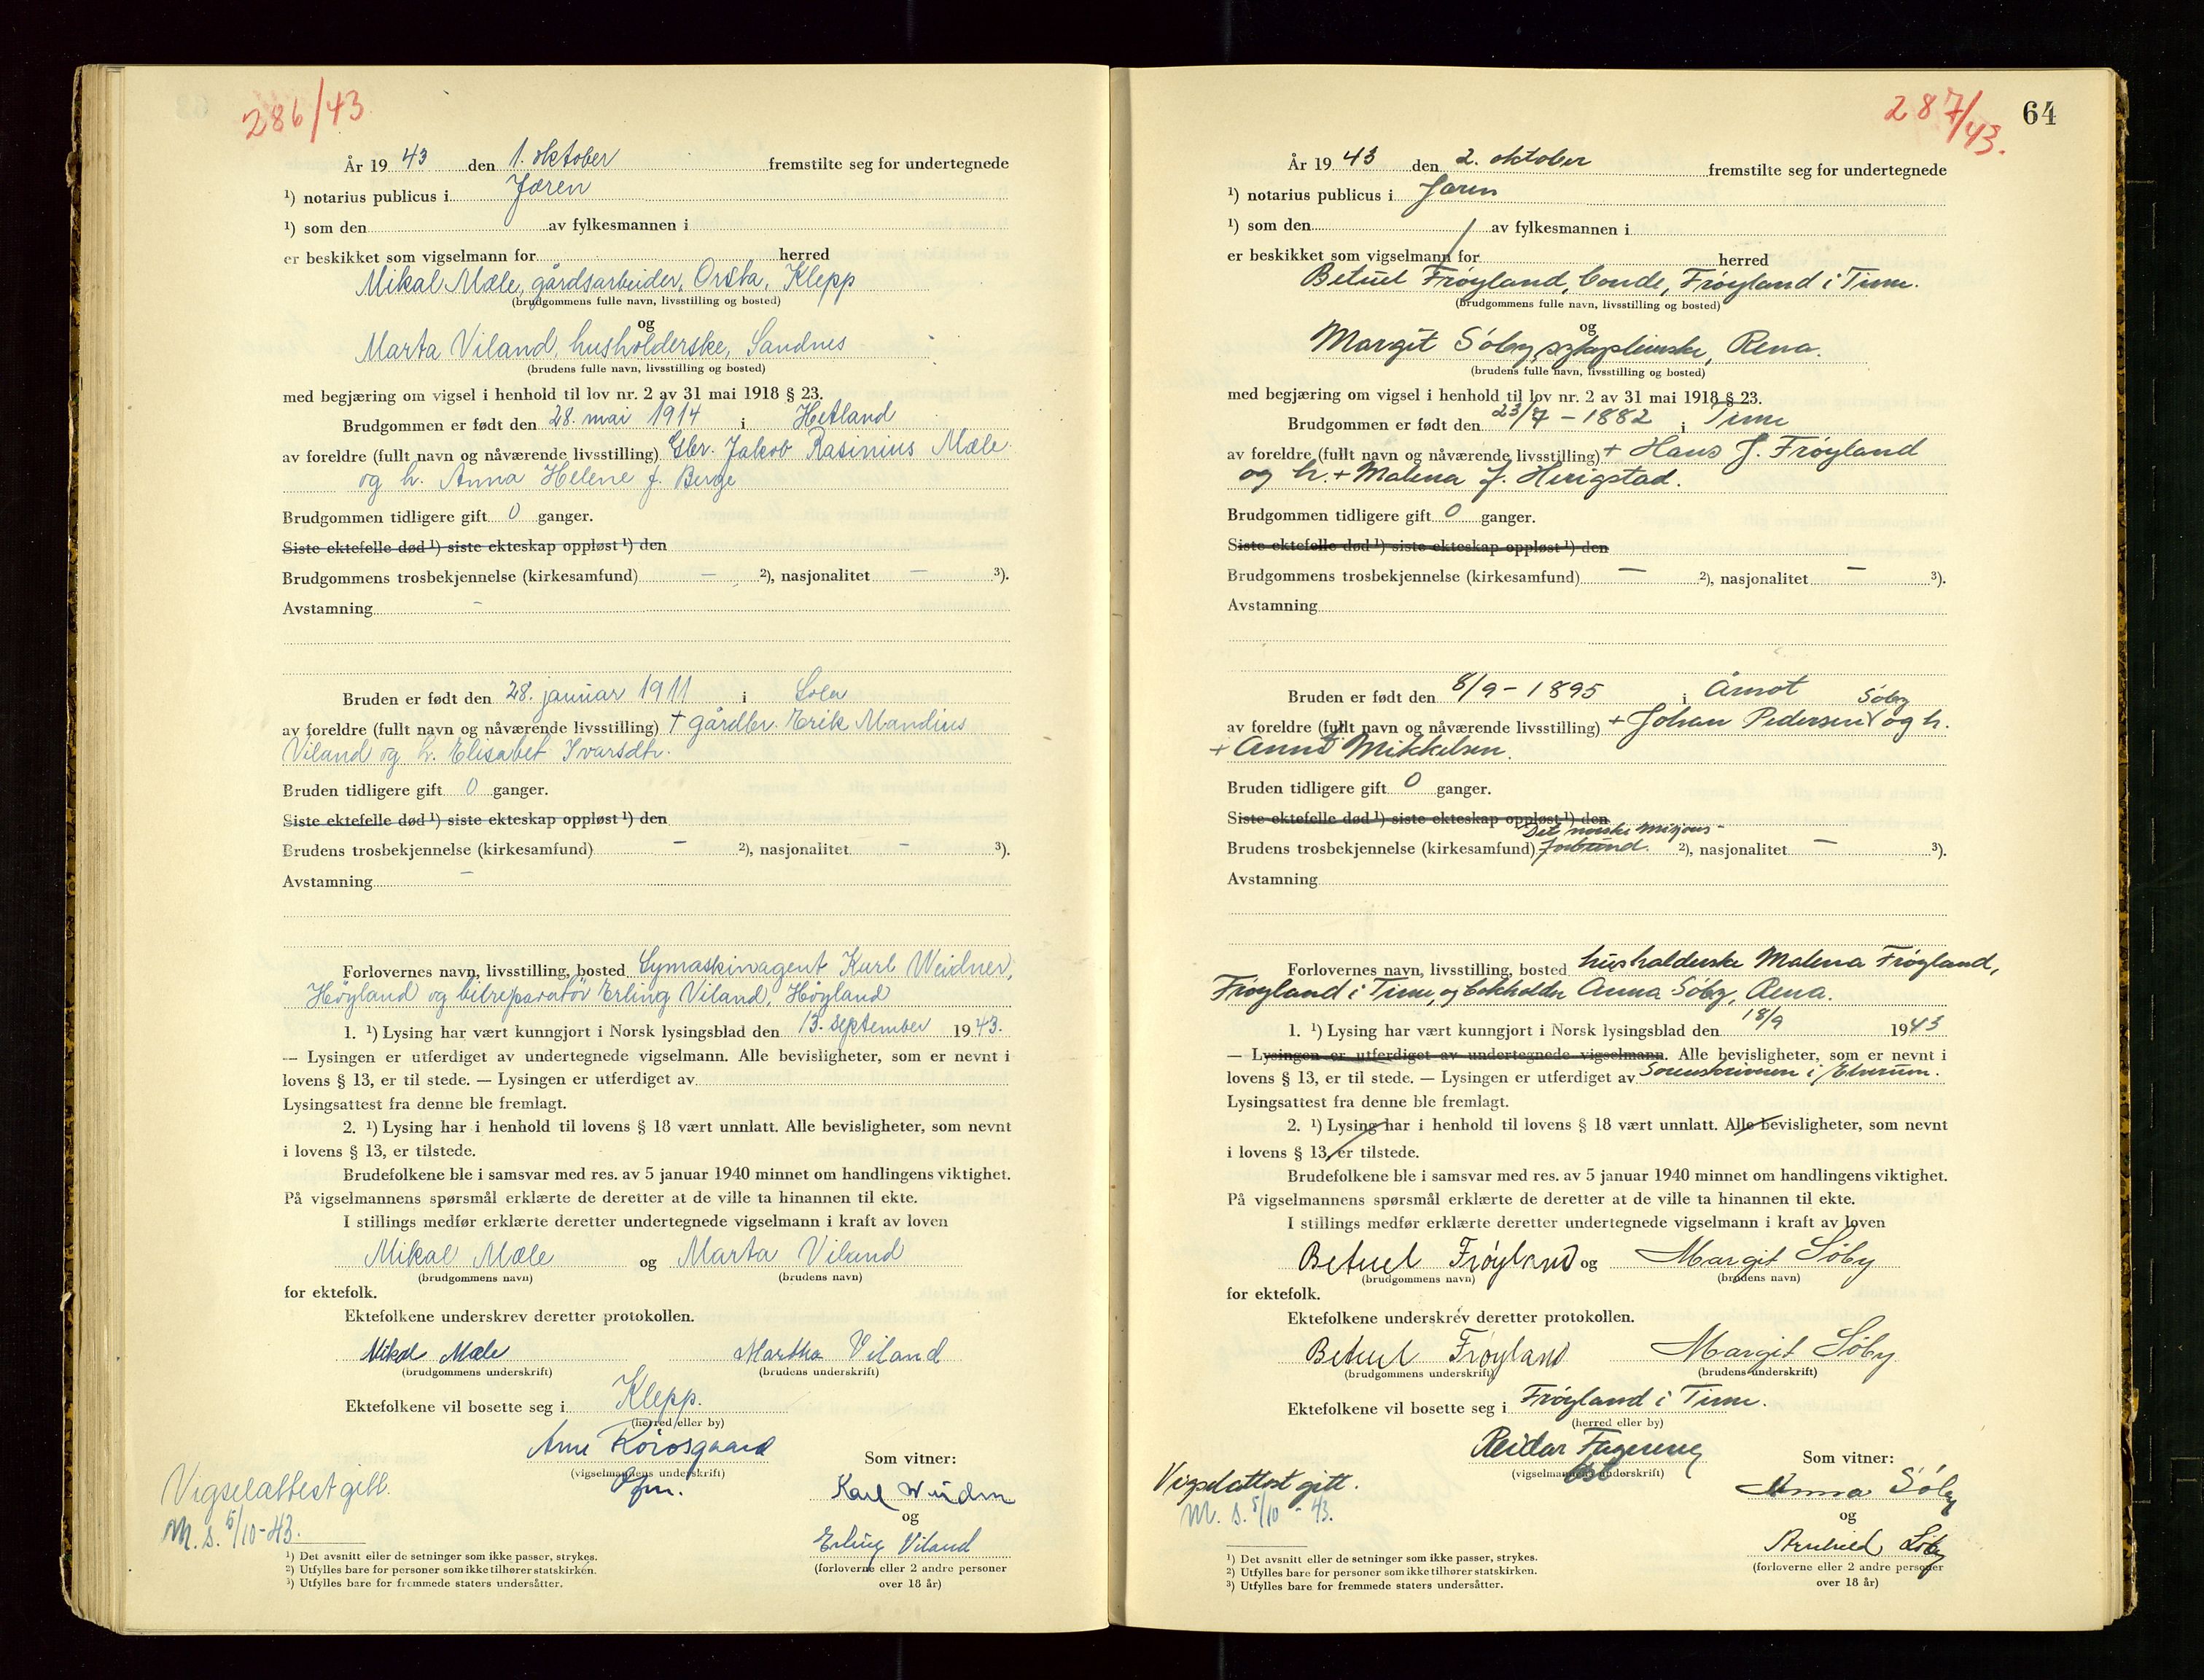 286/43
År 19 43 den 1. oktober fremstilte seg for undertegnede
¹) notarius publicus i Jæren
¹) som den av fylkesmannen i
er beskikket som vigselmann for herred
Mikal Mæle, gårdsarbeider, Orsta, Klepp
(brudgommens fulle navn, livsstilling og bosted)
og
Marta Viland, husholderske, Sandnes
(brudens fulle navn, livsstilling og bosted)
med begjæring om vigsel i henhold til lov nr. 2 av 31 mai 1918 § 23.
Brudgommen er født den 28. mai 1914 i Hetland
av foreldre (fullt navn og nåværende livsstilling) Gbr. Jakob Rasinius Mæle
og h. Anna Helene f. Berge
Brudgommen tidligere gift 0 ganger.
Siste ektefelle død ¹) siste ekteskap oppløst ¹) den
Brudgommens trosbekjennelse (kirkesamfund) — ²), nasjonalitet — ³).
Avstamning -
Bruden er født den 28. januar 1911 i Sola
av foreldre (fullt navn og nåværende livsstilling) + gårdbr. Erik Mandius
Viland og h. Elisabet Ivarsdtr.
Bruden tidligere gift 0 ganger.
Siste ektefelle død ¹) siste ekteskap oppløst ¹) den
Brudens trosbekjennelse (kirkesamfund) - ²), nasjonalitet - ³).
Avstamning -
Forlovernes navn, livsstilling, bosted Symaskinagent Karl Weidner,
Høyland og bilreparatør Erling Viland, Høyland
1. ¹) Lysing har vært kunngjort i Norsk lysingsblad den 13. september 1943.
— Lysingen er utferdiget av undertegnede vigselmann. Alle bevisligheter, som er nevnt i
lovens § 13, er til stede. — Lysingen er utferdiget av
Lysingsattest fra denne ble fremlagt.
2. ¹) Lysing har i henhold til lovens § 18 vært unnlatt. Alle bevisligheter, som nevnt
i lovens § 13, er tilstede.
Brudefolkene ble i samsvar med res. av 5 januar 1940 minnet om handlingens viktighet.
På vigselmannens spørsmål erklærte de deretter at de ville ta hinannen til ekte.
I stillings medfør erklærte deretter undertegnede vigselmann i kraft av loven
Mikal Mæle og Marta Viland
(brudgommens navn) (brudens navn)
for ektefolk.
Ektefolkene underskrev deretter protokollen.
Mikal Mæle Martha Viland
(brudgommens underskrift) (brudens underskrift)
Ektefolkene vil bosette seg i Klepp.
(herred eller by)
Arne
(vigselmannens underskrift)
Som vitner:
Karl
og
Erling Viland
(forloverne eller 2 andre personer
over 18 år)
Vigselattest gitt.
M. S. 5/10-43.
¹) Det avsnitt eller de setninger som ikke passer, strykes.
²) Utfylles bare for personer som ikke tilhører statskirken.
³) Utfylles bare for fremmede staters undersåtter.
287/43.
64
År 19 43 den 2. oktober fremstilte seg for undertegnede
¹) notarius publicus i Jæren
¹) som den / av fylkesmannen i
er beskikket som vigselmann for herred
Betuel Frøyland, bonde, Frøyland i Time.
(brudgommens fulle navn, livsstilling og bosted)
og
Margit Søby, sykepleierske, Rena.
(brudens fulle navn, livsstilling og bosted)
med begjæring om vigsel i henhold til lov nr. 2 av 31 mai 1918 § 23.
Brudgommen er født den 23/7 - 1882 i Time
av foreldre (fullt navn og nåværende livsstilling) + Hans J. Frøyland
og h. + Malena f. Herigstad.
Brudgommen tidligere gift 0 ganger.
Siste ektefelle død ¹) siste ekteskap oppløst ¹) den
Brudgommens trosbekjennelse (kirkesamfund) — ²), nasjonalitet — ³).
Avstamning
Bruden er født den 8/9 - 1895 i Åmot
av foreldre (fullt navn og nåværende livsstilling) + Johan Pedersen Søby og h.
+ Anne Mikkelsen.
Bruden tidligere gift 0 ganger.
Siste ektefelle død ¹) siste ekteskap oppløst ¹) den
Det norske misjons-
Brudens trosbekjennelse (kirkesamfund) forbund. ²), nasjonalitet — ³).
Avstamning
Forlovernes navn, livsstilling, bosted husholderske Malena Frøyland,
Frøyland i Time, og bokholder Anna Søby, Rena.
1. ¹) Lysing har vært kunngjort i Norsk lysingsblad den 18/9 1943
— Lysingen er utferdiget av undertegnede vigselmann. Alle bevisligheter, som er nevnt i
lovens § 13, er til stede. — Lysingen er utferdiget av Sorenskriveren i Elverum.
Lysingsattest fra denne ble fremlagt.
2. ¹) Lysing har i henhold til lovens § 18 vært unnlatt. Alle bevisligheter, som nevnt
i lovens § 13, er tilstede.
Brudefolkene ble i samsvar med res. av 5 januar 1940 minnet om handlingens viktighet.
På vigselmannens spørsmål erklærte de deretter at de ville ta hinannen til ekte.
I stillings medfør erklærte deretter undertegnede vigselmann i kraft av loven
Betuel Frøyland og Margit Søby
(brudgommens navn) (brudens navn)
for ektefolk.
Ektefolkene underskrev deretter protokollen.
Betuel Frøyland Margit Søby
(brudgommens underskrift) (brudens underskrift)
Ektefolkene vil bosette seg i Frøyland i Time.
(herred eller by)
Reidar
(vigselmannens underskrift)
Som vitner:
Anna Søby
og
Arnhild Søby
(forloverne eller 2 andre personer
over 18 år)
Vigselattest gitt.
M. S. 5/10 - 43.
¹) Det avsnitt eller de setninger som ikke passer, strykes.
²) Utfylles bare for personer som ikke tilhører statskirken.
³) Utfylles bare for fremmede staters undersåtter.